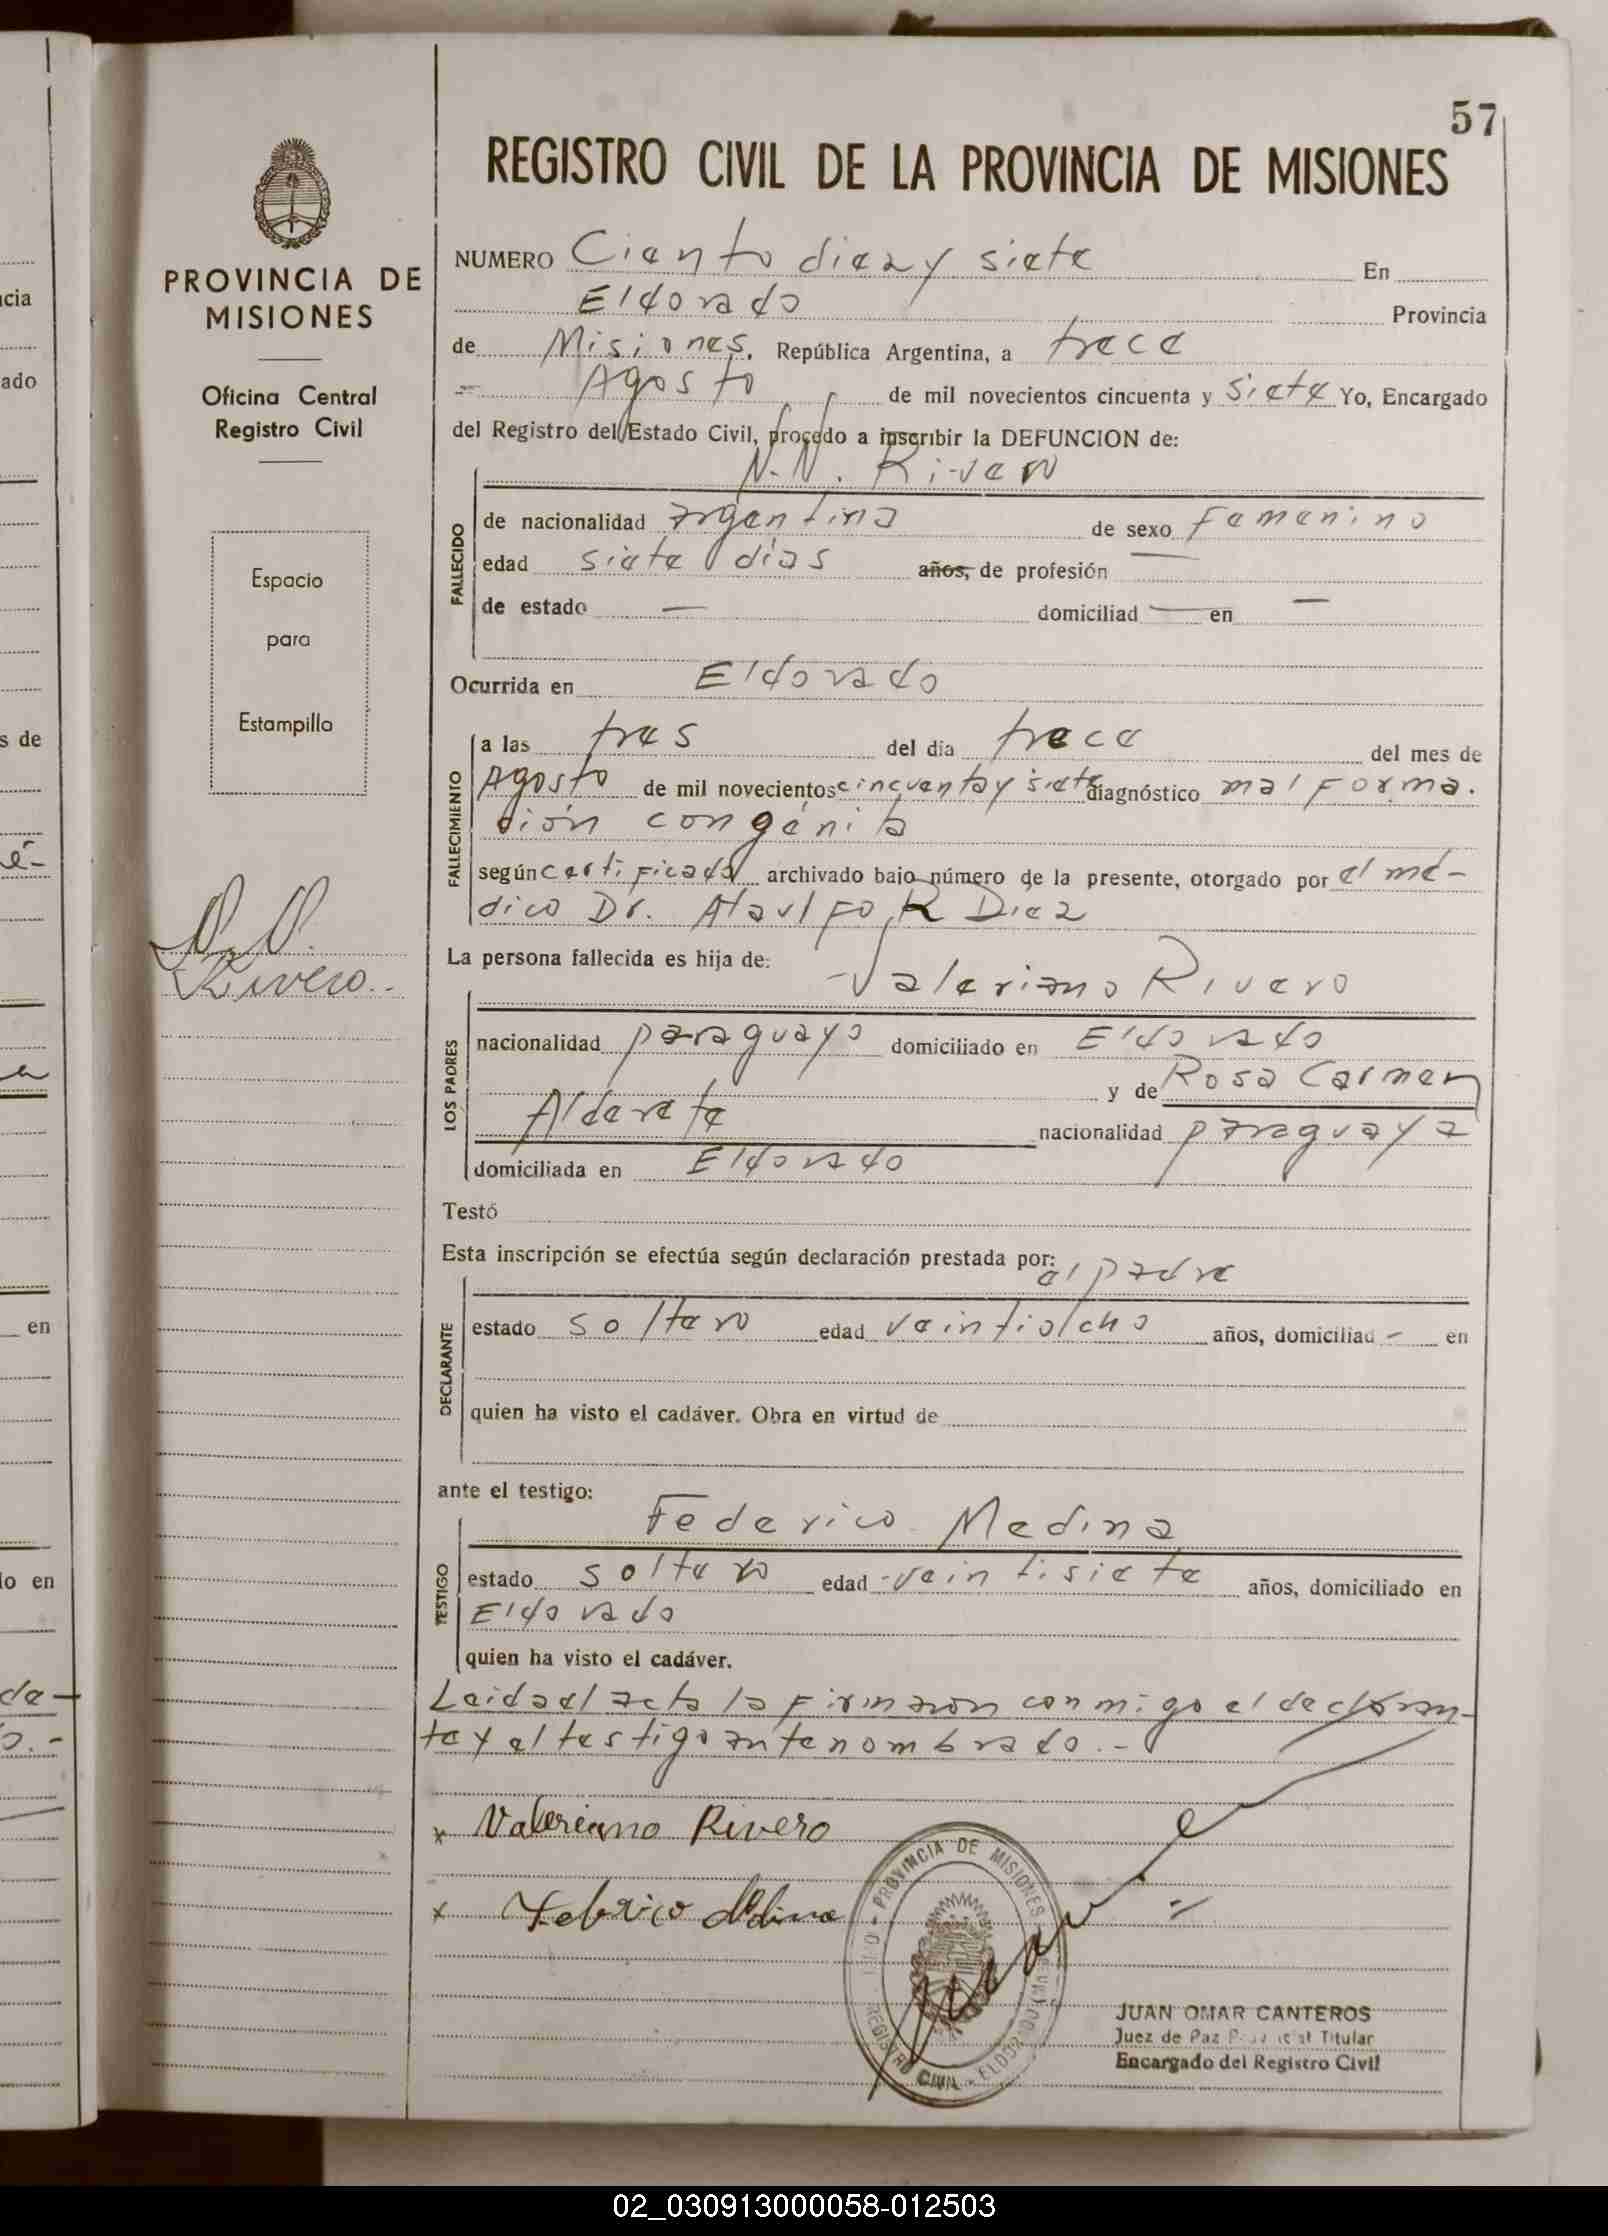 57
REGISTRO CIVIL DE LA PROVINCIA DE MISIONES
PROVINCIA DE
MISIONES
Oficina Central
Registro Civil
Espacio
para
Estampilla
N. N.
Rivero.-
NUMERO Ciento diez y siete En
Eldorado Provincia
de Misiones, República Argentina, a trece
Agosto de mil novecientos cincuenta y siete Yo, Encargado
del Registro del Estado Civil, procedo a inscribir la DEFUNCION de:
N. N. Rivero
FALLECIDO
de nacionalidad argentina de sexo Femenino
edad siete días años, de profesión —
de estado — domiciliad — en —
Ocurrida en Eldorado
FALLECIMIENTO
a las tres del día trece del mes de
Agosto de mil novecientos cincuenta y siete diagnóstico malforma-
ción congénita
según certificado archivado bajo número de la presente, otorgado por el mé-
dico Dr. Ataulfo R Diez
La persona fallecida es hija de:
Valeriano Rivero
LOS PADRES
nacionalidad paraguayo domiciliado en Eldorado
y de Rosa Carmen
Alderete nacionalidad paraguaya
domiciliada en Eldorado
Testó
Esta inscripción se efectúa según declaración prestada por:
el padre
DECLARANTE
estado soltero edad veintiocho años, domiciliad - en
quien ha visto el cadáver. Obra en virtud de
ante el testigo:
Federico Medina
TESTIGO
estado soltero edad veintisiete años, domiciliado en
Eldorado
quien ha visto el cadáver.
Leida el acta la firmaron conmigo el declaran-
te y el testigo antenombrado.-
x Valeriano Rivero
x Federico Medina
PROVINCIA DE MISIONES
REGISTRO CIVIL - ELDORADO
JUAN OMAR CANTEROS
Juez de Paz Provincial Titular
Encargado del Registro Civil
cia
ado
s de
é-
a
en
lo en
de-
o.-
02_030913000058-012503